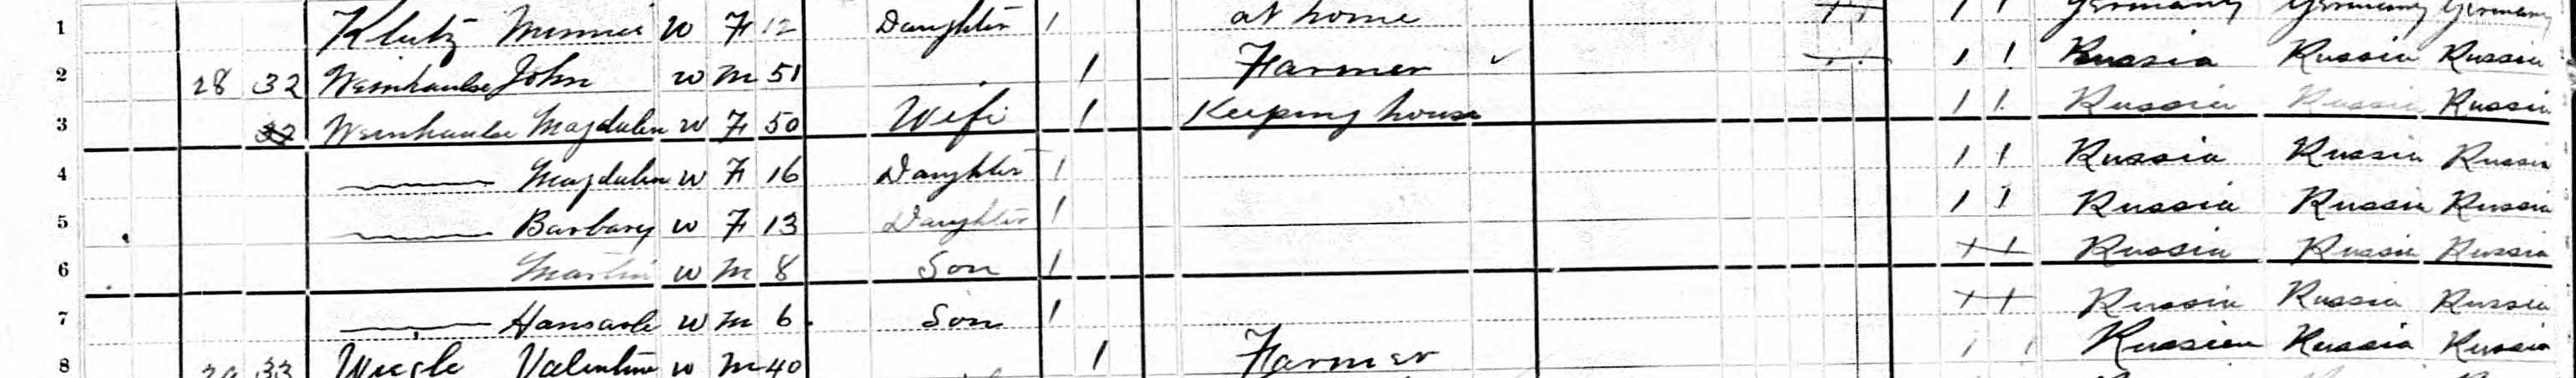 1 Klutz Minnie W F 12 Daughter 1 at home 1 1 Germany Germany Germany
2 28 32 John W M 51 1 Farmer ✓ 1 1 Russia Russia Russia
3 32 Magdalen W F 50 Wife 1 Keeping house 1 1 Russia Russia Russia
4 Magdalen W F 16 Daughter 1 1 1 Russia Russia Russia
5 Barbary W F 13 Daughter 1 1 1 Russia Russia Russia
6 Martin W M 8 Son 1 Russia Russia Russia
7 W M 6 Son 1 Russia Russia Russia
8 29 33 Valentine W M 40 1 Farmer 1 1 Russia Russia Russia